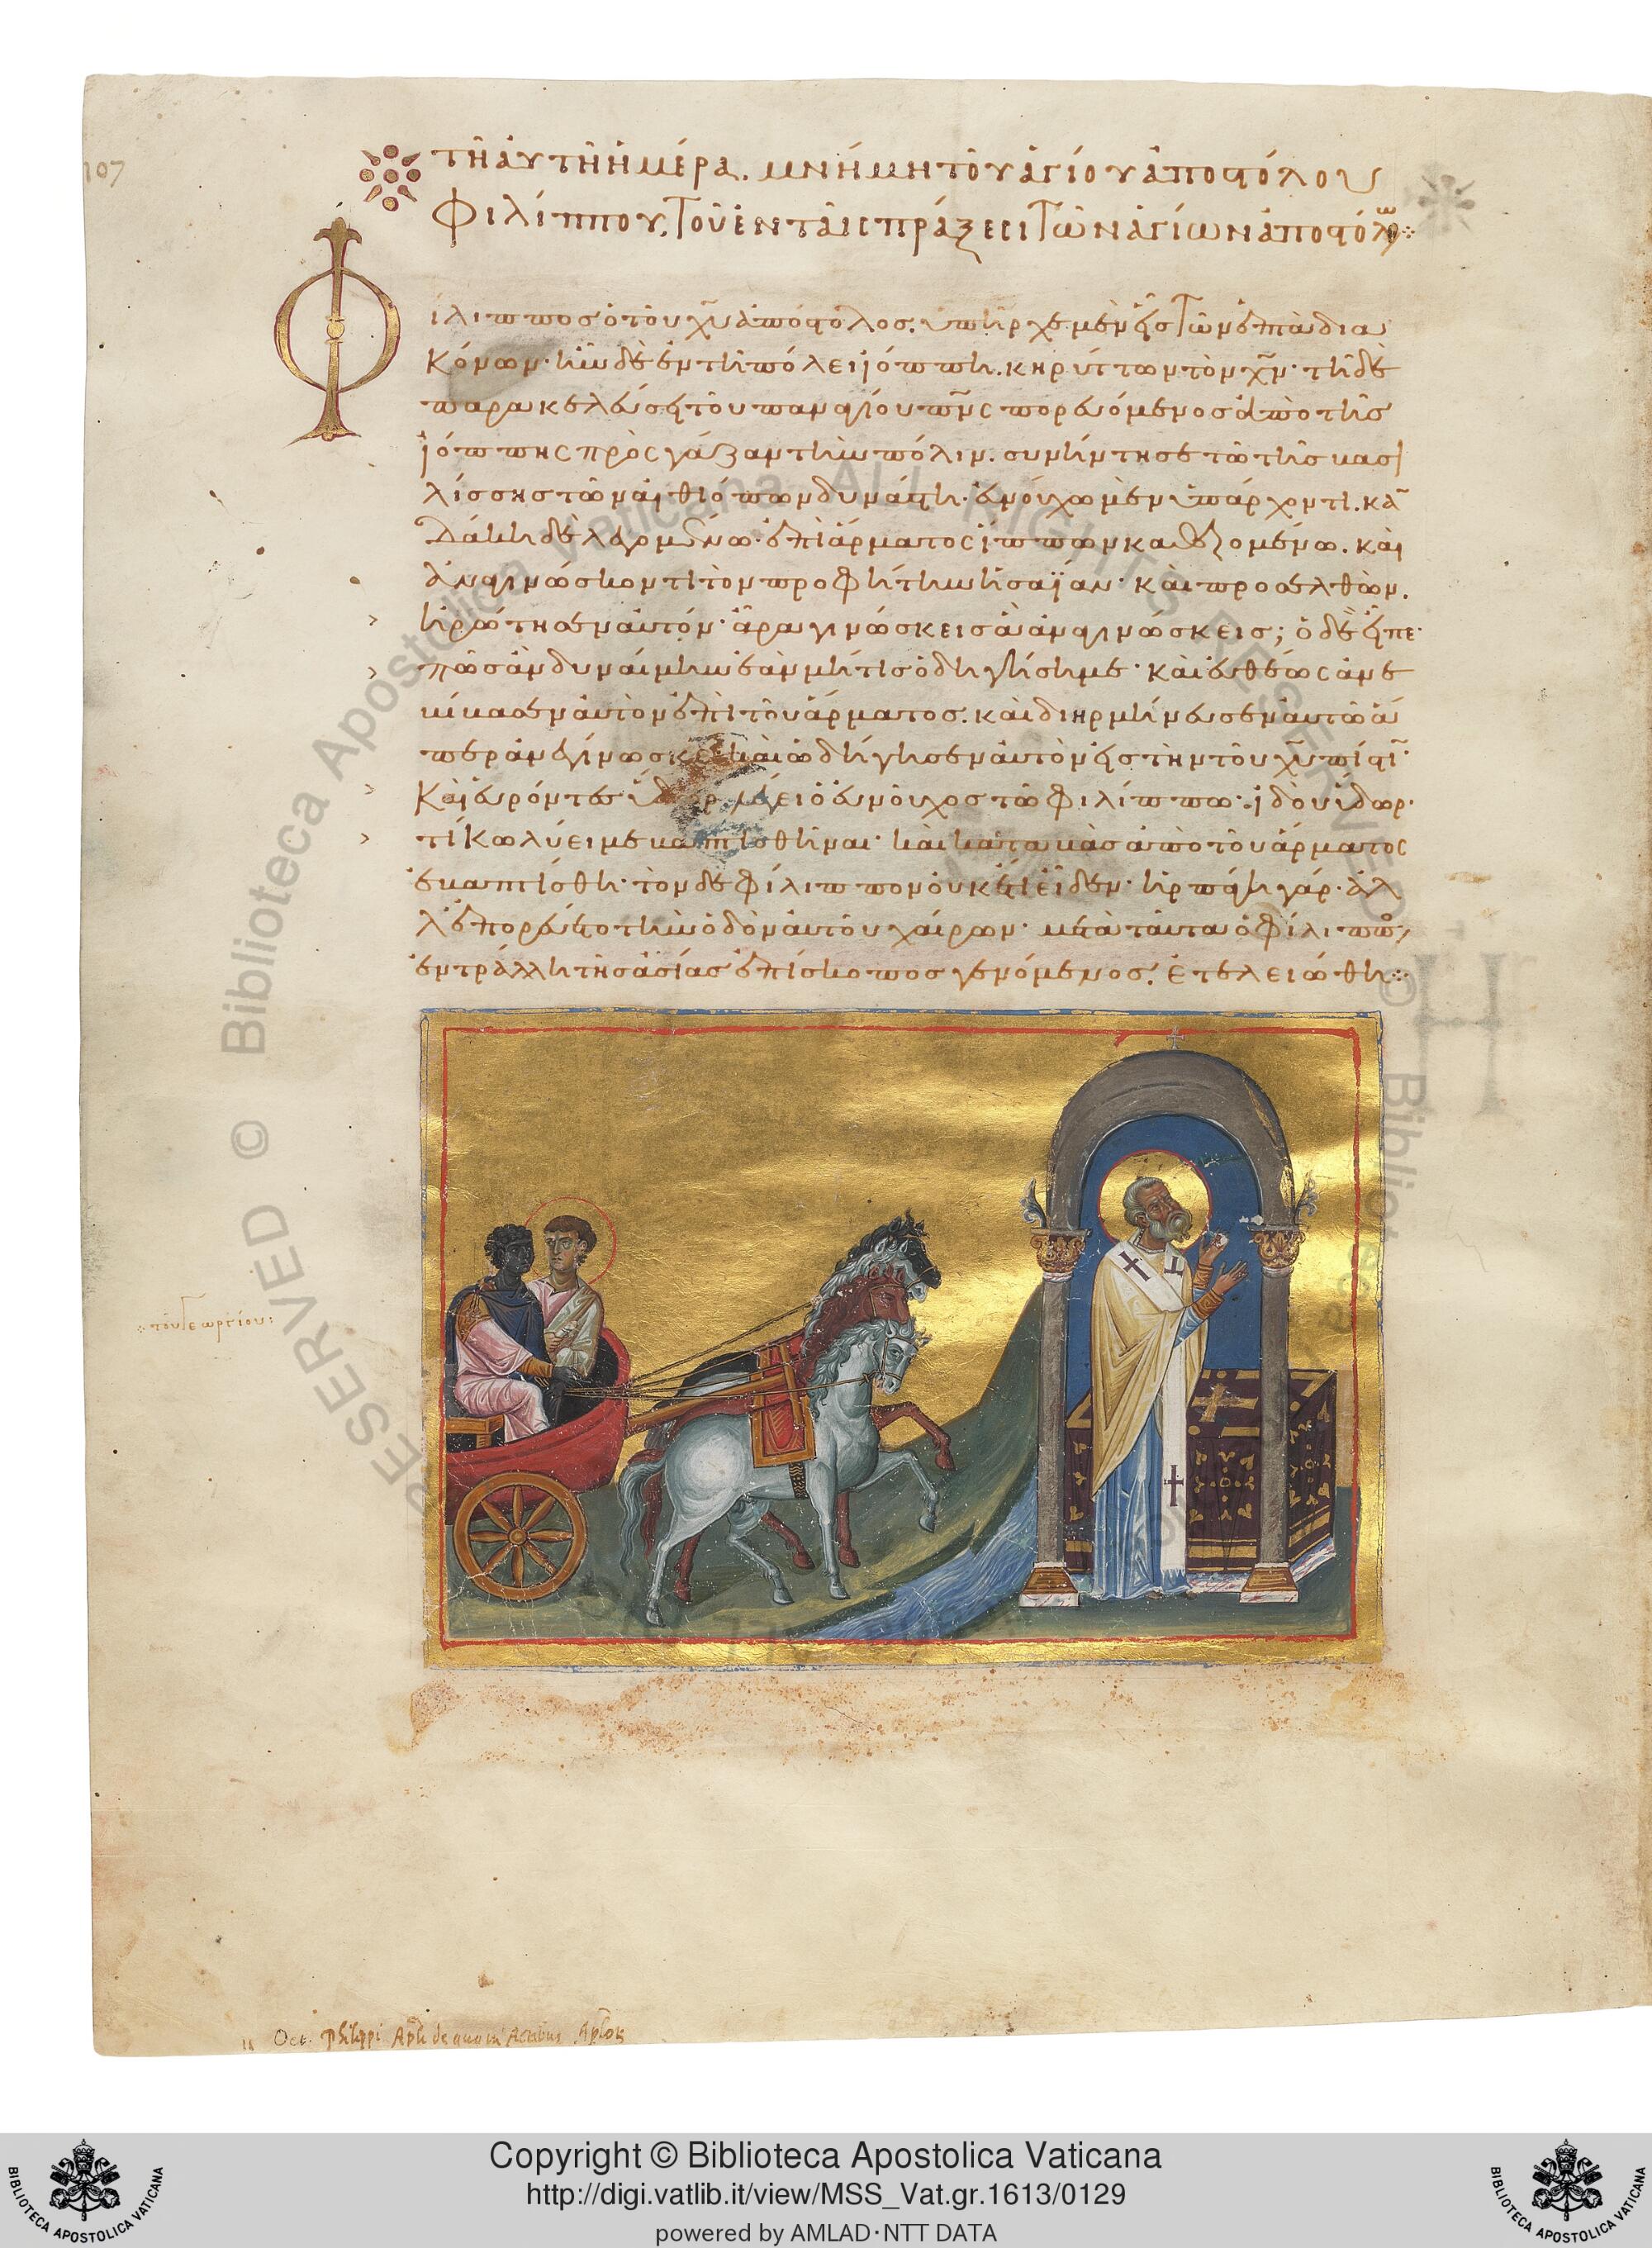 107
τῆ αὐτῆ ἡμέρα. μνήμη τοῦ ἁγίου ἀποστόλου
Φιλίππου, τοῦ ἐν ταῖς πράξεσι τῶν ἁγίων ἀποστόλω
Φίλιππος ὁ τοῦ χῦ ἀπόστολος. ὑπῆρχε μὲν εἷς τῶν ἑπτὰ δια
κόνων· ἦν δὲ ἐν τῆ πόλει ἰόππη. κηρύττων τὸν χν· τῆ δὲ
παρακελεύσει τοῦ παναγίου πνς πορευόμενος ἀπὸ τῆς
ἰόππης πρὸς γάζαν τὴν πόλιν. συνήντησε τῶ τῆς βασι
λίσσης τῶν αἰθιόπων δυνάστη· εὐνούχω μὲν ὑπάρχοντι. κα
δάκη δὲ λεγομένω· ἐπὶ ἅρματος ἵππων καθεζομένω. καὶ
ἀναγινώσκοντι τὸν προφήτην ἡσαΐαν· καὶ προσελθὼν.
ἠρώτησεν αὐτόν· ἆρα γινώσκεις ἃ ἀναγινώσκεις; ὁ δὲ εἶπε·
πῶς ἂν δυναίμην ἐὰν μή τις ὁδηγήση με· καὶ εὐθέως ἀνε
βίβασεν αὐτὸν ἐπὶ τοῦ ἅρματος. καὶ διηρμήνευσεν αὐτῶ ἅ
περ ἀνεγίνωσκε· καὶ ὡδήγησεν αὐτὸν εἰς τὴν τοῦ χῦ πίστι·
Καὶ εὑρόντες λέγει ὁ εὐνοῦχος τῶ φιλίππω· ἰδοὺ ὕδωρ·
τί κωλύει με βαπτισθῆναι· καὶ καταβὰς ἀπὸ τοῦ ἅρματος
ἐβαπτίσθη· τὸν δὲ φίλιππον οὐκέτι εἶδεν· ἡρπάγη γάρ· ἀλ
λ' ἐπορεύετο τὴν ὁδὸν αὐτοῦ χαίρων· μετὰ ταῦτα ὁ φίλιππο
ἐν τράλλη τῆς ἀσίας ἐπίσκοπος γενόμενος. ἐτελειώθη
τοῦ Γεωργίου
11 Oct. Philippi Apli de quo in Actibus Aplor
RESERVED © Biblioteca Apostolica Vaticana ALL RIGHTS RESERVED © Biblioteca
Copyright © Biblioteca Apostolica Vaticana
http://digi.vatlib.it/view/MSS_Vat.gr.1613/0129
powered by AMLAD·NTT DATA
BIBLIOTECA APOSTOLICA VATICANA
BIBLIOTECA APOSTOLICA VATICANA